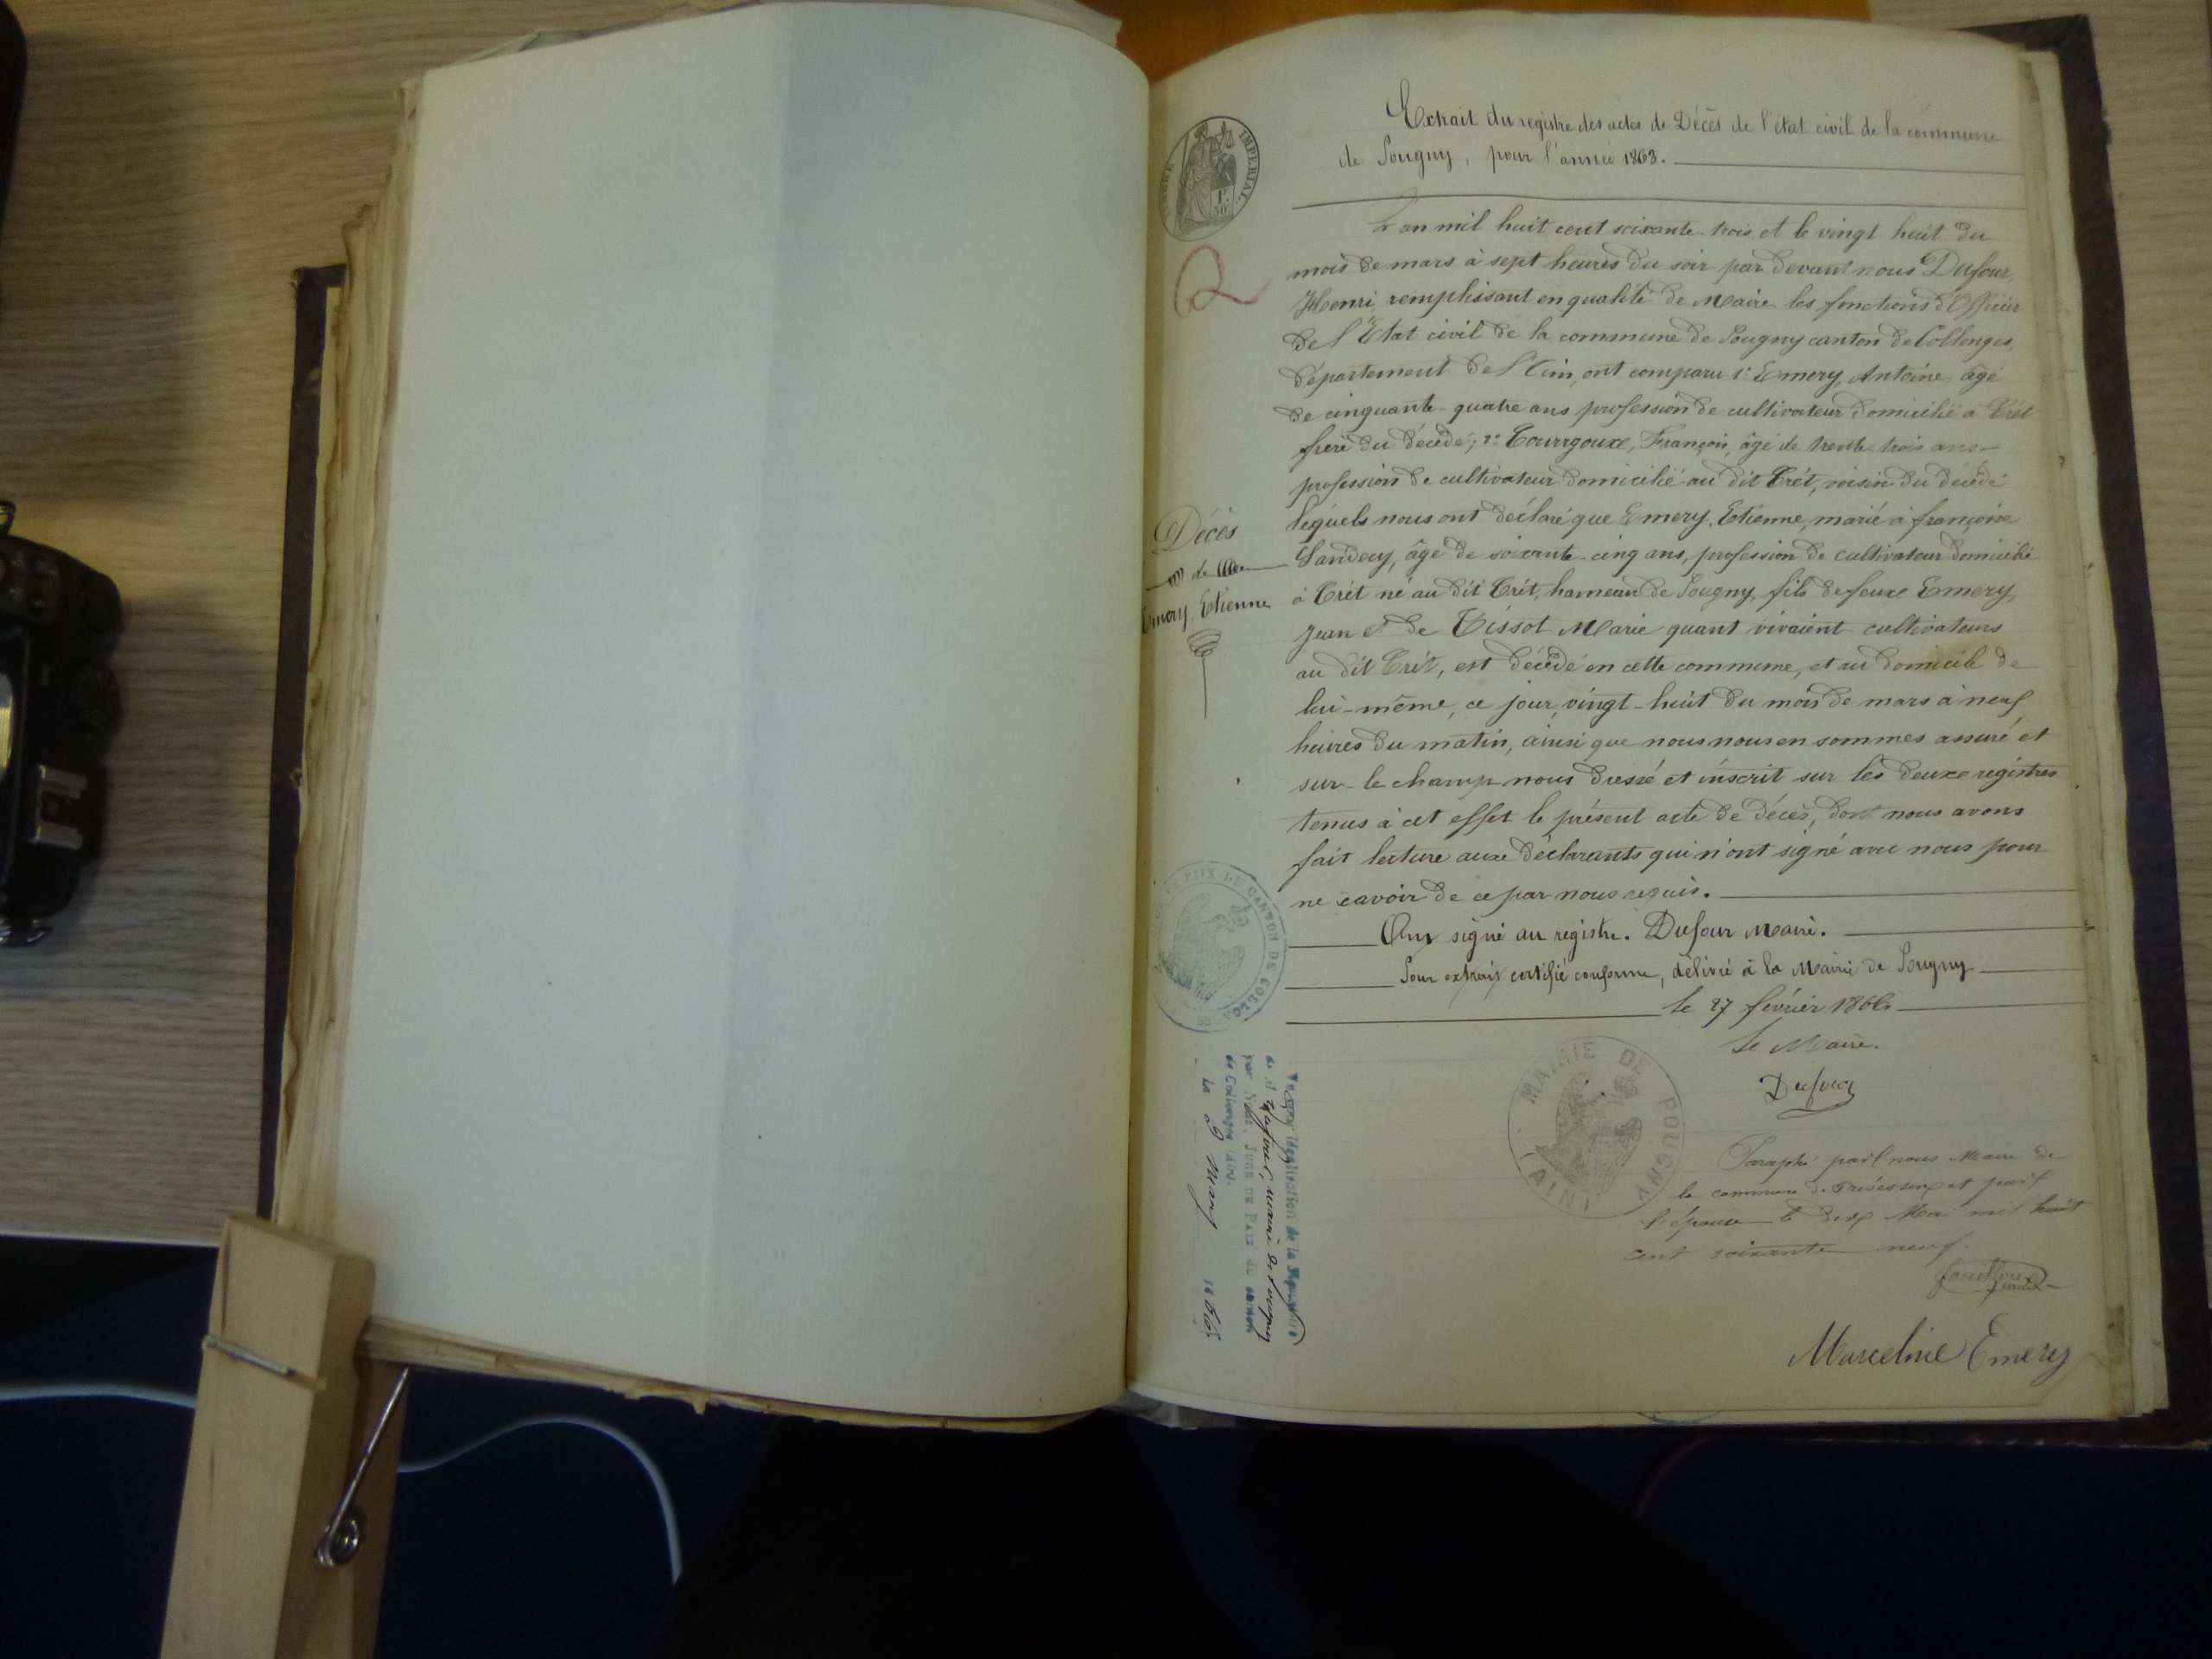 Extrait du registre des actes de Décès de l'état civil de la commune
de Pougny, pour l'année 1863.
TIMBRE IMPERIAL
1F
50C
L'an mil huit cent soixante-trois et le vingt huit du
mois de mars à sept heures du soir par devant nous Dufour,
Henri remplissant en qualité de Maire les fonctions d'Officier
de l'Etat civil de la commune de Pougny canton de Collonges,
département de l'Ain, ont comparu 1° Emery, Antoine âgé
de cinquante-quatre ans profession de cultivateur domicilié à Crêt
frère du décédé; 2° Tourrgoux, François, âgé de trente trois ans
profession de cultivateur domicilié au dit Crêt, voisin du décédé
lesquels nous ont déclaré que Emery, Etienne, marié à françoise
Landecy, âgé de soixante-cinq ans, profession de cultivateur domicilié
à Crêt né au dit Crêt, hameau de Pougny, fils de feux Emery,
Jean et de Tissot Marie quant vivaient cultivateurs
au dit Crêt, est décédé en cette commune, et au domicile de
lui-même, ce jour, vingt-huit du mois de mars à neuf
heures du matin, ainsi que nous nous en sommes assuré et
sur-le champ nous dressé et inscrit sur les deux registres
tenus à cet effet le présent acte de décès, dont nous avons
fait lecture aux déclarants qui n'ont signé avec nous pour
ne savoir de ce par nous requis.
Ont signé au registre. Dufour Maire.
Pour extrait certifié conforme, délivré à la Mairie de Pougny
le 27 février 1866
Le Maire.
Dufour
Décès
de
Emery, Etienne
DE PAIX DU CANTON DE COLLONGES
MAIRIE DE POUGNY
(AIN)
légalisation de la
de M Dufour, maire de Pougny
par Nous, JUGE DE PAIX du canton
de Collonges (AIN).
Le 9 Mars
Paraphé par nous Maire de
la commune de et par
l'épouse le dix Mai mil huit
cent soixante neuf.
Marceline Emery